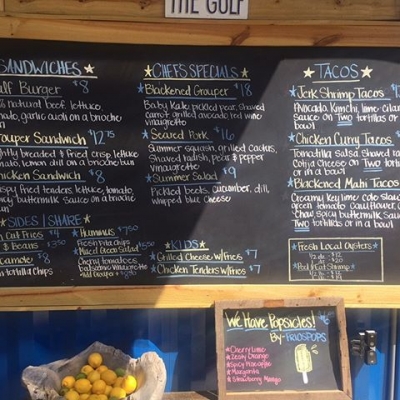 THE GULF
SANDWICHES
Burger $8
natural beef, lettuce,
tomato, garlic aioli on a brioche
Grouper Sandwich $12.75
lightly breaded & fried crisp lettuce
tomato, lemon dill on a brioche
Chicken Sandwich $8
fried tenders, lettuce, tomato,
spicy buttermilk sauce on a
SIDES | SHARE
Fries $4
& Beans $3.50
Tortilla Chips
Hummus $7.50
Fresh Pita Chips
Mixed Green Salad
Cherry tomatoes,
balsamic vinaigrette
CHEF'S SPECIALS
Blackened Grouper $18
Baby Kale, pickled pear, shaved
carrot, grilled avocado, red wine
vinaigrette
Seared Pork $16
Summer squash, grilled cactus,
Shaved radish, peas & pepper
vinaigrette
Summer Salad $9
Pickled beets, cucumber, dill,
whipped blue cheese
KIDS
Grilled Cheese w/Fries $7
Chicken Tenders w/Fries $7
TACOS
Jerk Shrimp Tacos
Avocado, Kimchi, lime-cilantro
sauce on Two tortillas or
bowl
Chicken Curry Tacos
Tomatilla Salsa, Shaved
Cotija Cheese on Two tortillas
or in a bowl
Blackened Mahi Tacos
Creamy Key lime Cole slaw
green tomato
Spicy buttermilk Sauce
Two tortillas or in a
bowl
Fresh Local Oysters
We Have Popsicles!
By- FRIOSPOPS
Cherry Lime
Zesty Orange
Spicy Pineapple
Margarita
Strawberry Mango